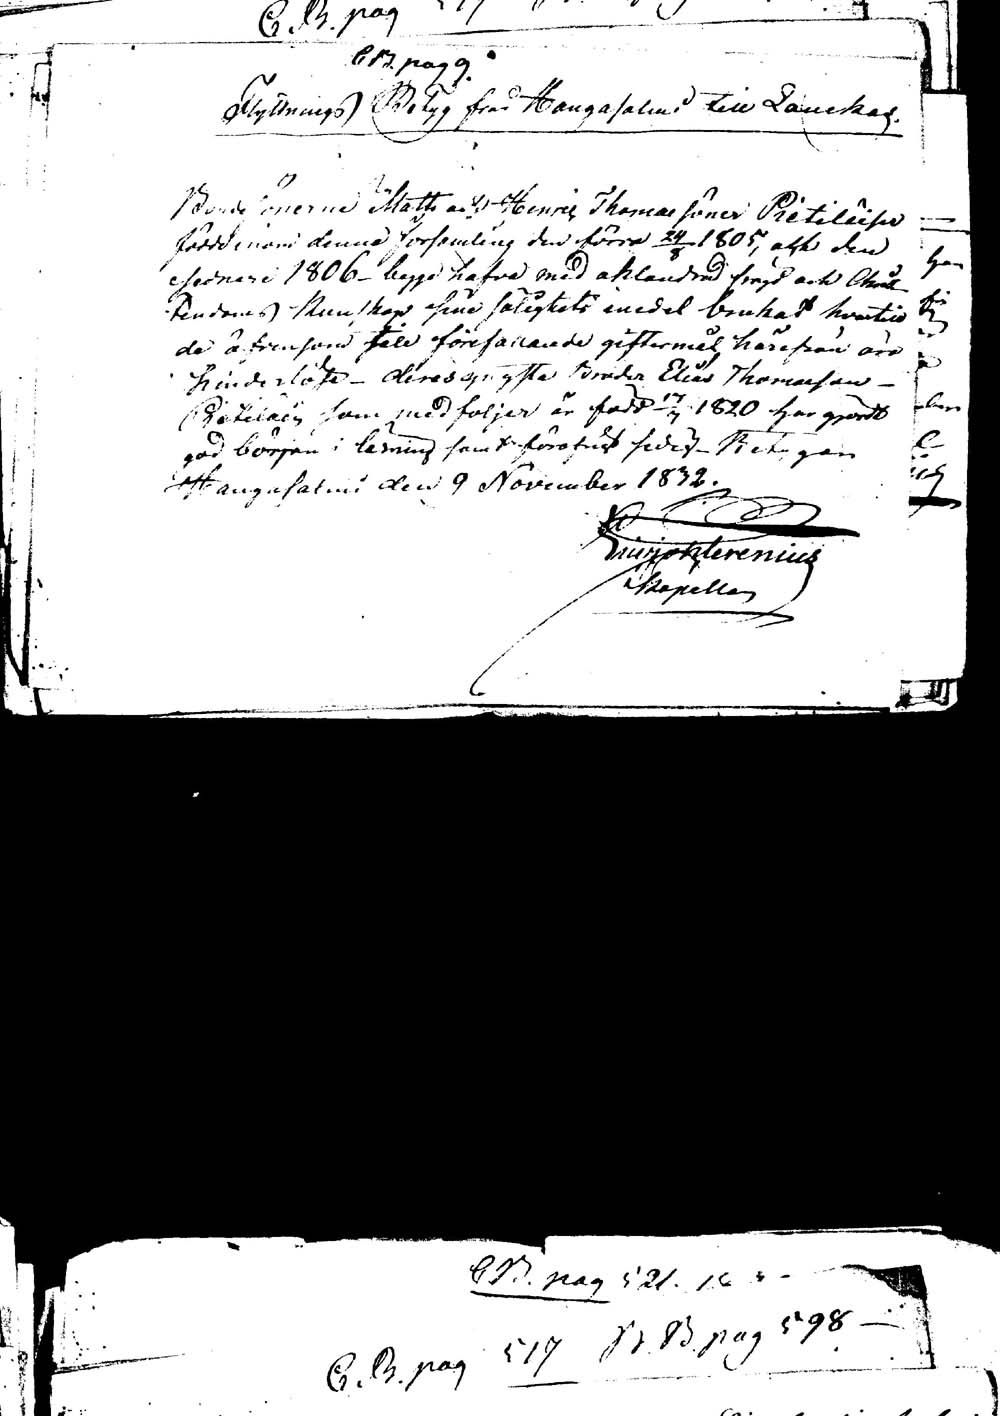 C. B. pag 517
C B. pag 9.
Flyttnings Betyg från Haugasalmi till Laukas.
Bondesönerne Matts och Henric Thomassöner Pietiläiser
födde inom denna församling den förra 24/8 1805, och den
sednare 1806 begge hafva med oklandrad frägd och Christ
endoms Kunskap sine salighets medel brukat hvartill
de äfvensom till förefallande giftermål härifrån äro
hinderlöse – deras yngsta Broder Elias Thomasson –
Pietiläin som medföljer är född 17/7 1820 har gjordt
god början i läsning samt föröfrigt sedig Betygar
Haugasalmi den 9 November 1832.
Kapellan
C B. pag 521.
C. B. pag 517 B. pag 598